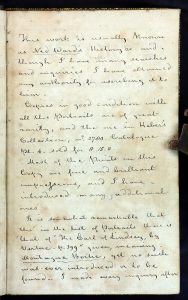 This work is usually known
as Ned Ward's History and,
though I have many searches
and inquiries I have obtained
no authority for ascribing it to
him.
Copies in good condition with
all the Portraits are of great
rarity, and the one in Heber's
Collection Catalogue
pt. 4. sold for
Most of the Prints in this
Copy are fine and brilliant
impressions, and I have
introduced many additional
ones
It is somewhat remarkable that
in the list of Portraits there is
that of The Earl of Lindsey, by
meaning
Montague Bertie, yet no such
was ever introduced or to be
found. I made every inquiry after